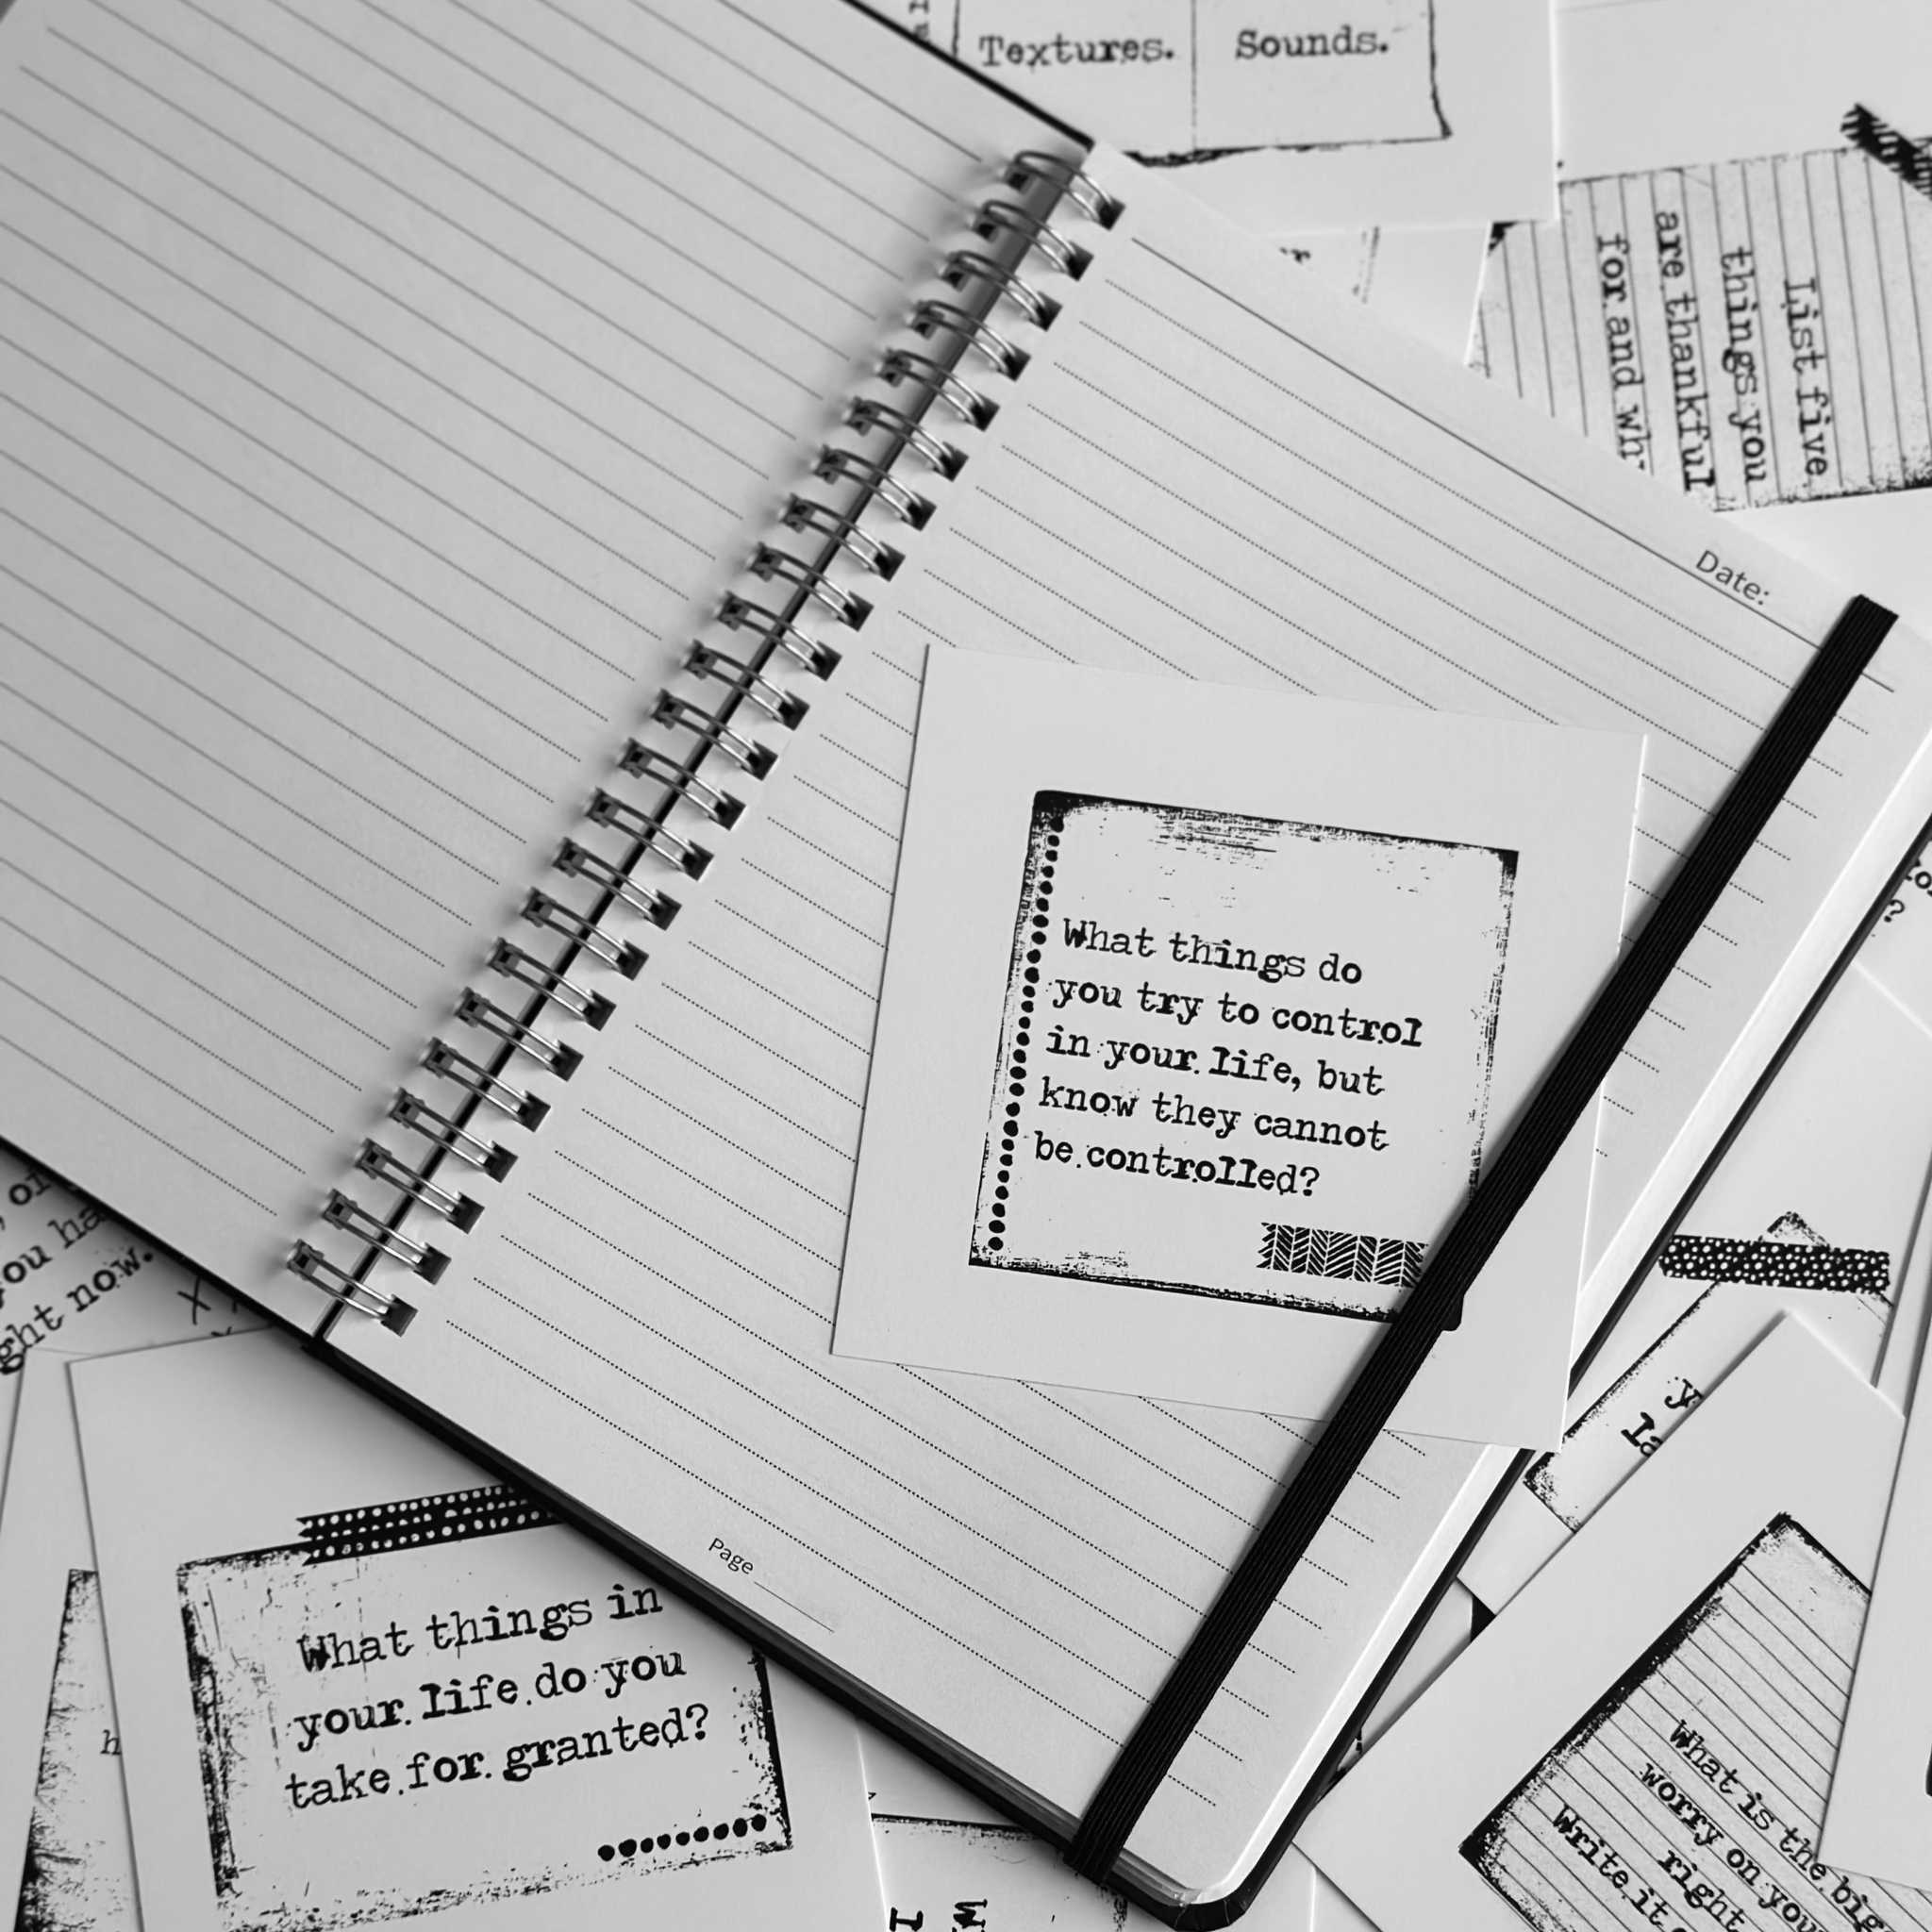 Textures.
Sounds.
List five
things you
are thankful
for and
Date:
What things do
you try to control
in your life, but
know they cannot
be controlled?
?
you
now.
Page
What things in
your life do you
take for granted?
What is the
worry on
right
Write it